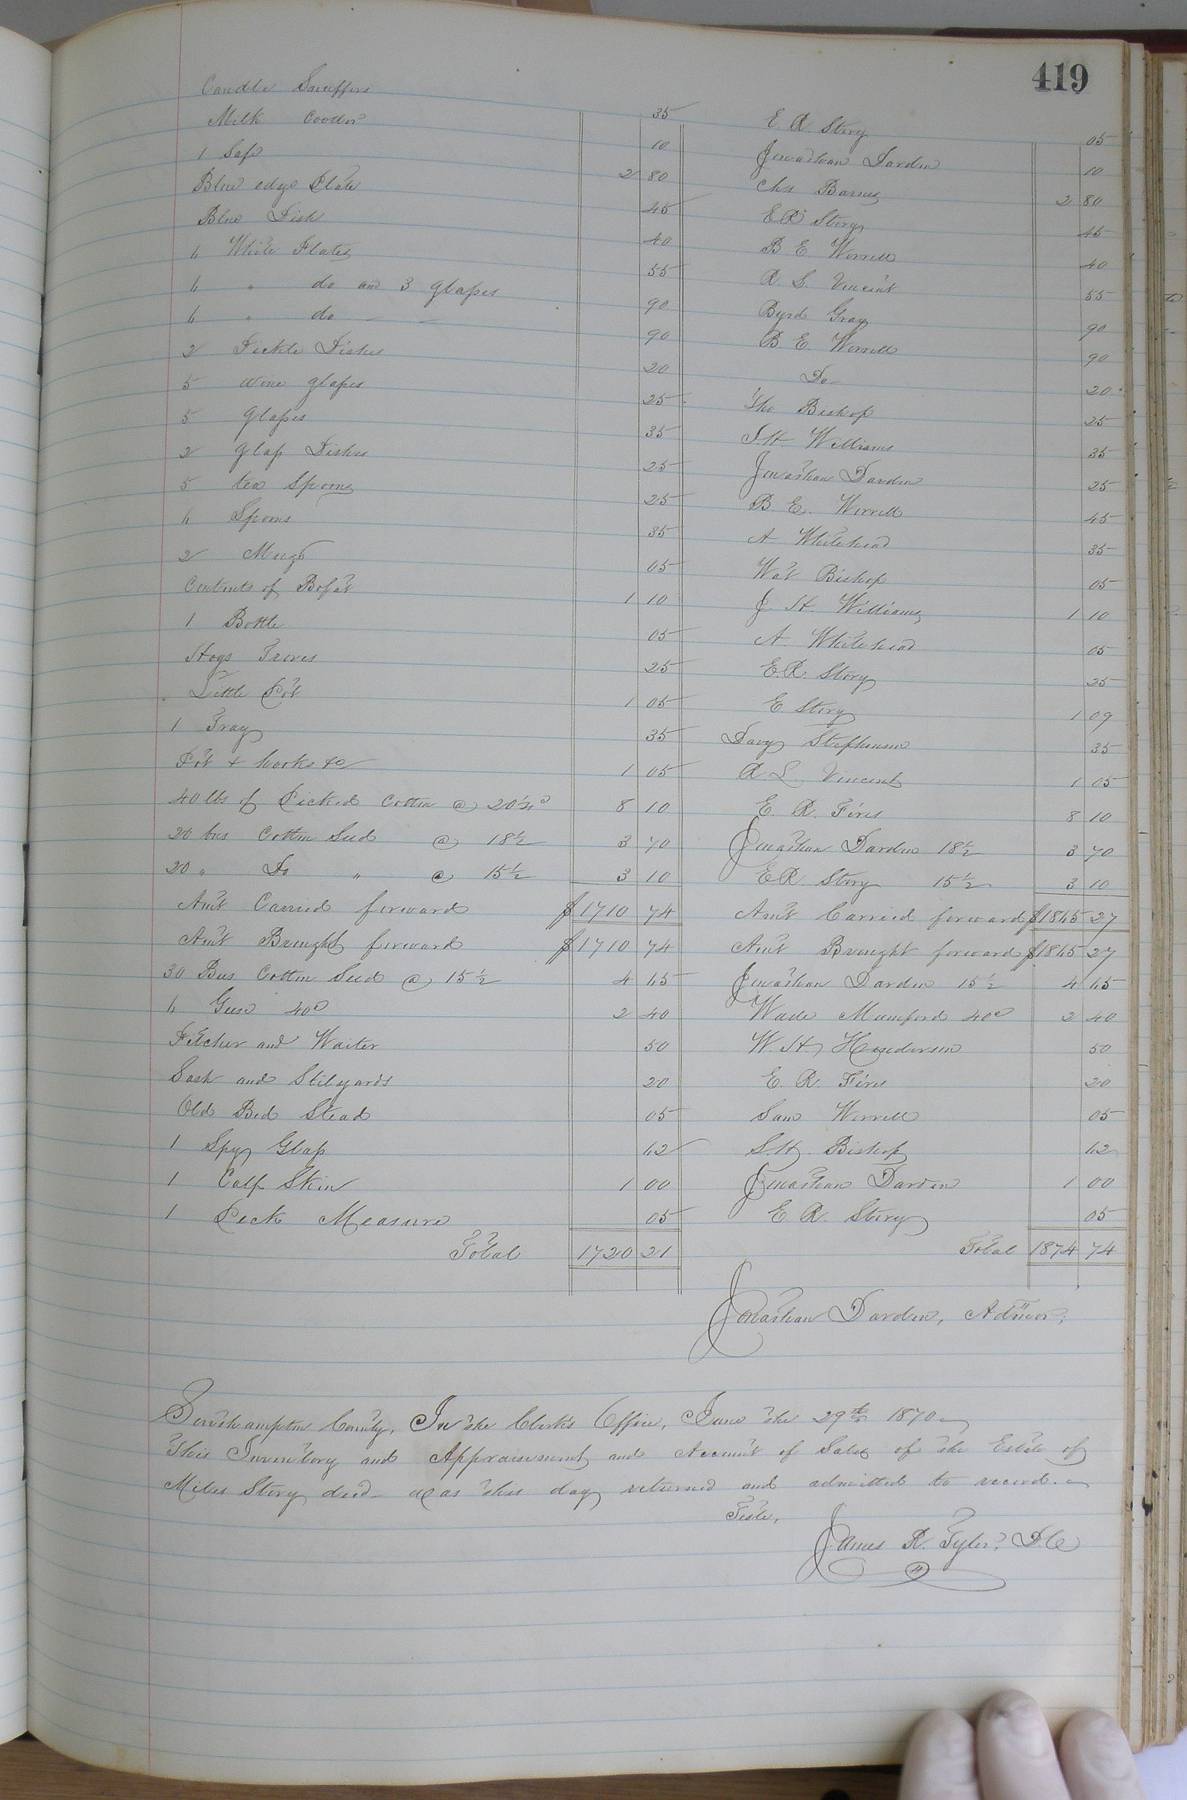 419
Candle Snuffers 35 E R Story 05
Milk Cooler 10 Jonathan Darden 10
1 Safe 2 80 Chs Barnes 2 80
Blue edge Plate 45 E R Story 45
Blue Dish 40 B E Worrell 40
4 White Plates 55 R. S. Vincent 55
4 " do and 3 glasses 90 Byrd Gray 90
4 " do — — 90 B. E. Worrell 90
2 Pickle Dishes 20 Do 20
5 wine glasses 25 Tho Bishop 25
5 glasses 35 J. H. Williams 35
2 glass Dishes 25 Jonathan Darden 25
5 tea Spoons 25 B E. Worrell 45
4 Spoons 35 A Whitehead 35
2 Mugs 05 Wat Bishop 05
Contents of Bofat 1 10 J. H. Williams 1 10
1 Bottle 05 A. Whitehead 05
Hogs 25 E. R. Story 25
Little Pot 1 05 E Story 1 09
1 Tray 35 Davy Stephenson 35
Pot & hooks &c 1 05 R L. Vincent 1 05
40 lbs of Picked Cotton @ 20¼c 8 10 E. R. 8 10
20 bus Cotton Seed @ 18½ 3 70 Jonathan Darden 18½ 3 70
20 " Do " @ 15½ 3 10 E R. Story 15½ 3 10
Am't Carried forward $1710 74 Am't Carried forward $1865 27
Am't Brought forward $1710 74 Am't Brought forward $1865 27
30 Bus Cotton Seed @ 15½ 4 65 Jonathan Darden 15½ 4 65
6 Geese 40c 2 40 Wade Mumford 40c 2 40
Pitcher and Waiter 50 W. H. Henderson 50
Sash and Stilyards 20 E. R. 20
Old Bed Stead 05 Sam Worrell 05
1 Spy Glass 62 S. H. Bishop 62
1 Calf Skin 1 00 Jonathan Darden 1 00
1 Peck Measure 05 E R. Story 05
Total 1720 21 Total 1874 74
Jonathan Darden, Admor,
Southampton County, In the Clerk's Office, June the 29th 1870—
This Inventory and Appraisement and Account of Sales of the Estate of
Miles Story decd— was this day returned and admitted to record.—
Teste,
James R. Tyler, D.C